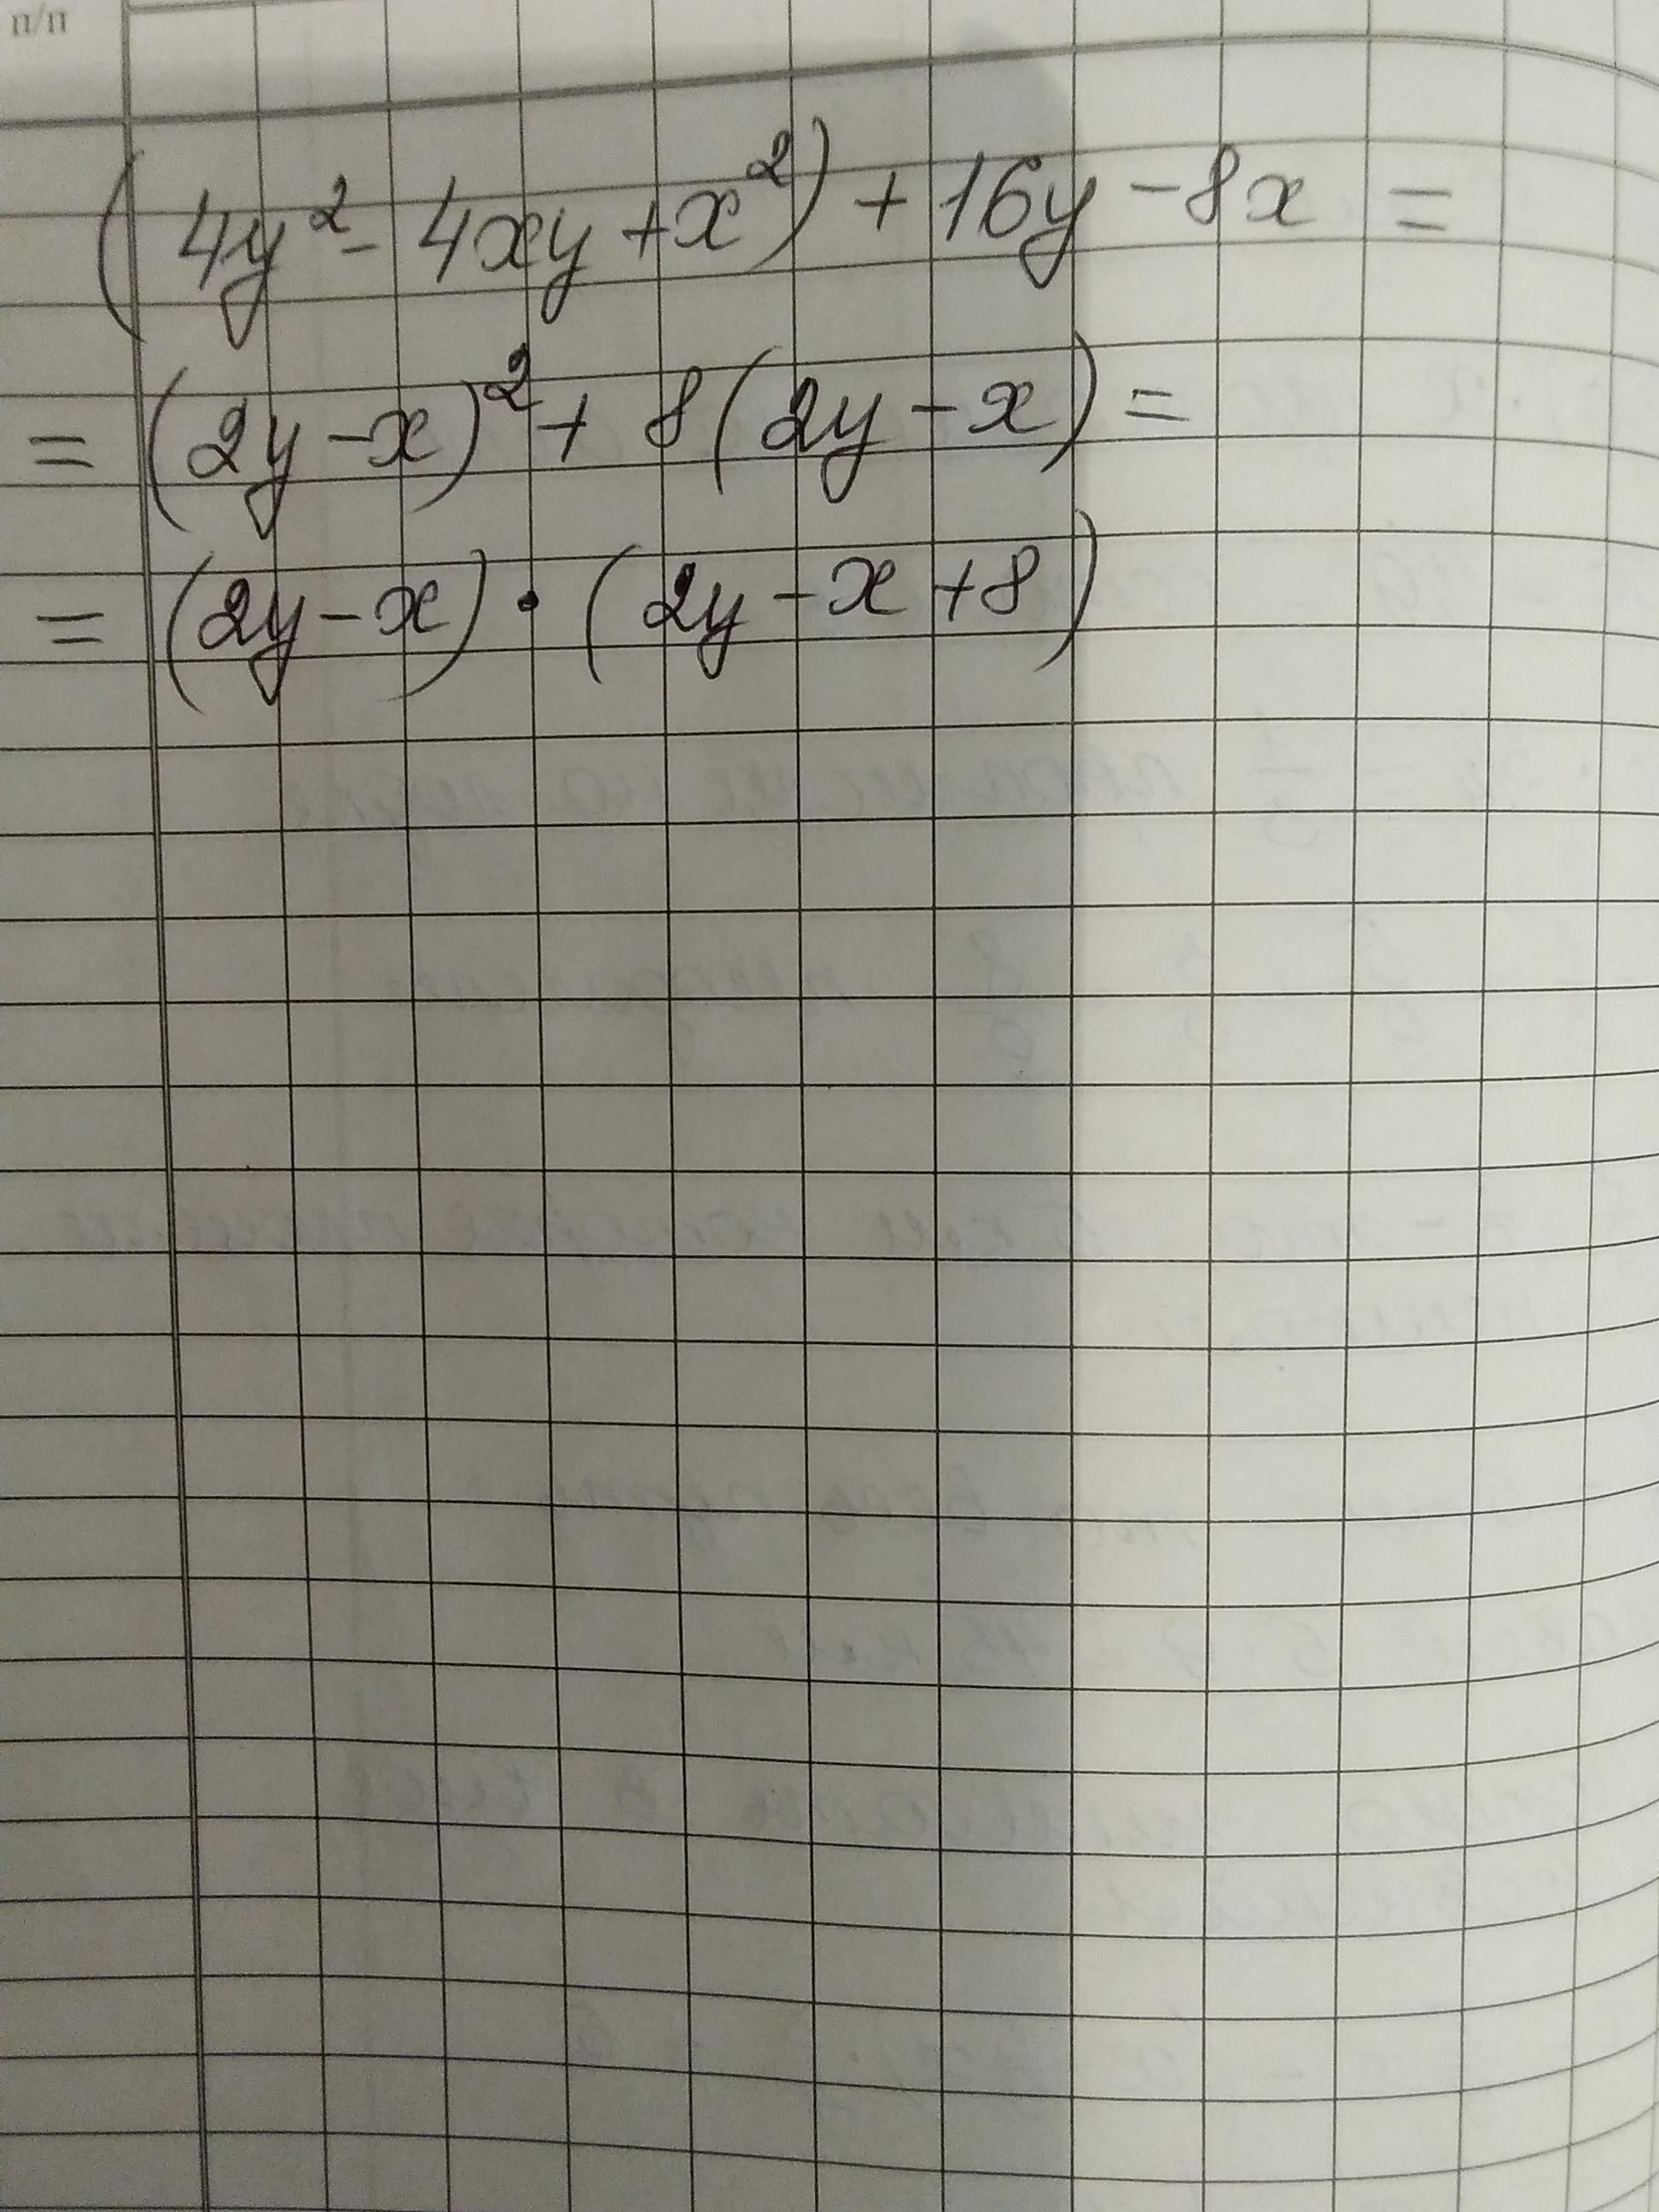 п/п
(4y² - 4xy + x²) + 16y - 8x =
= (2y - x)² + 8(2y - x) =
= (2y - x) • (2y - x + 8)